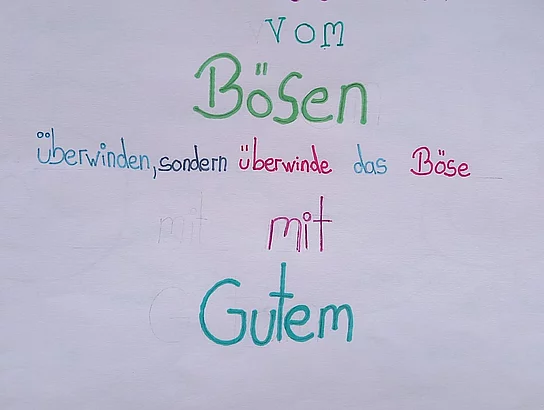 vom
Bösen
überwinden, sondern überwinde das Böse
mit mit
Gutem